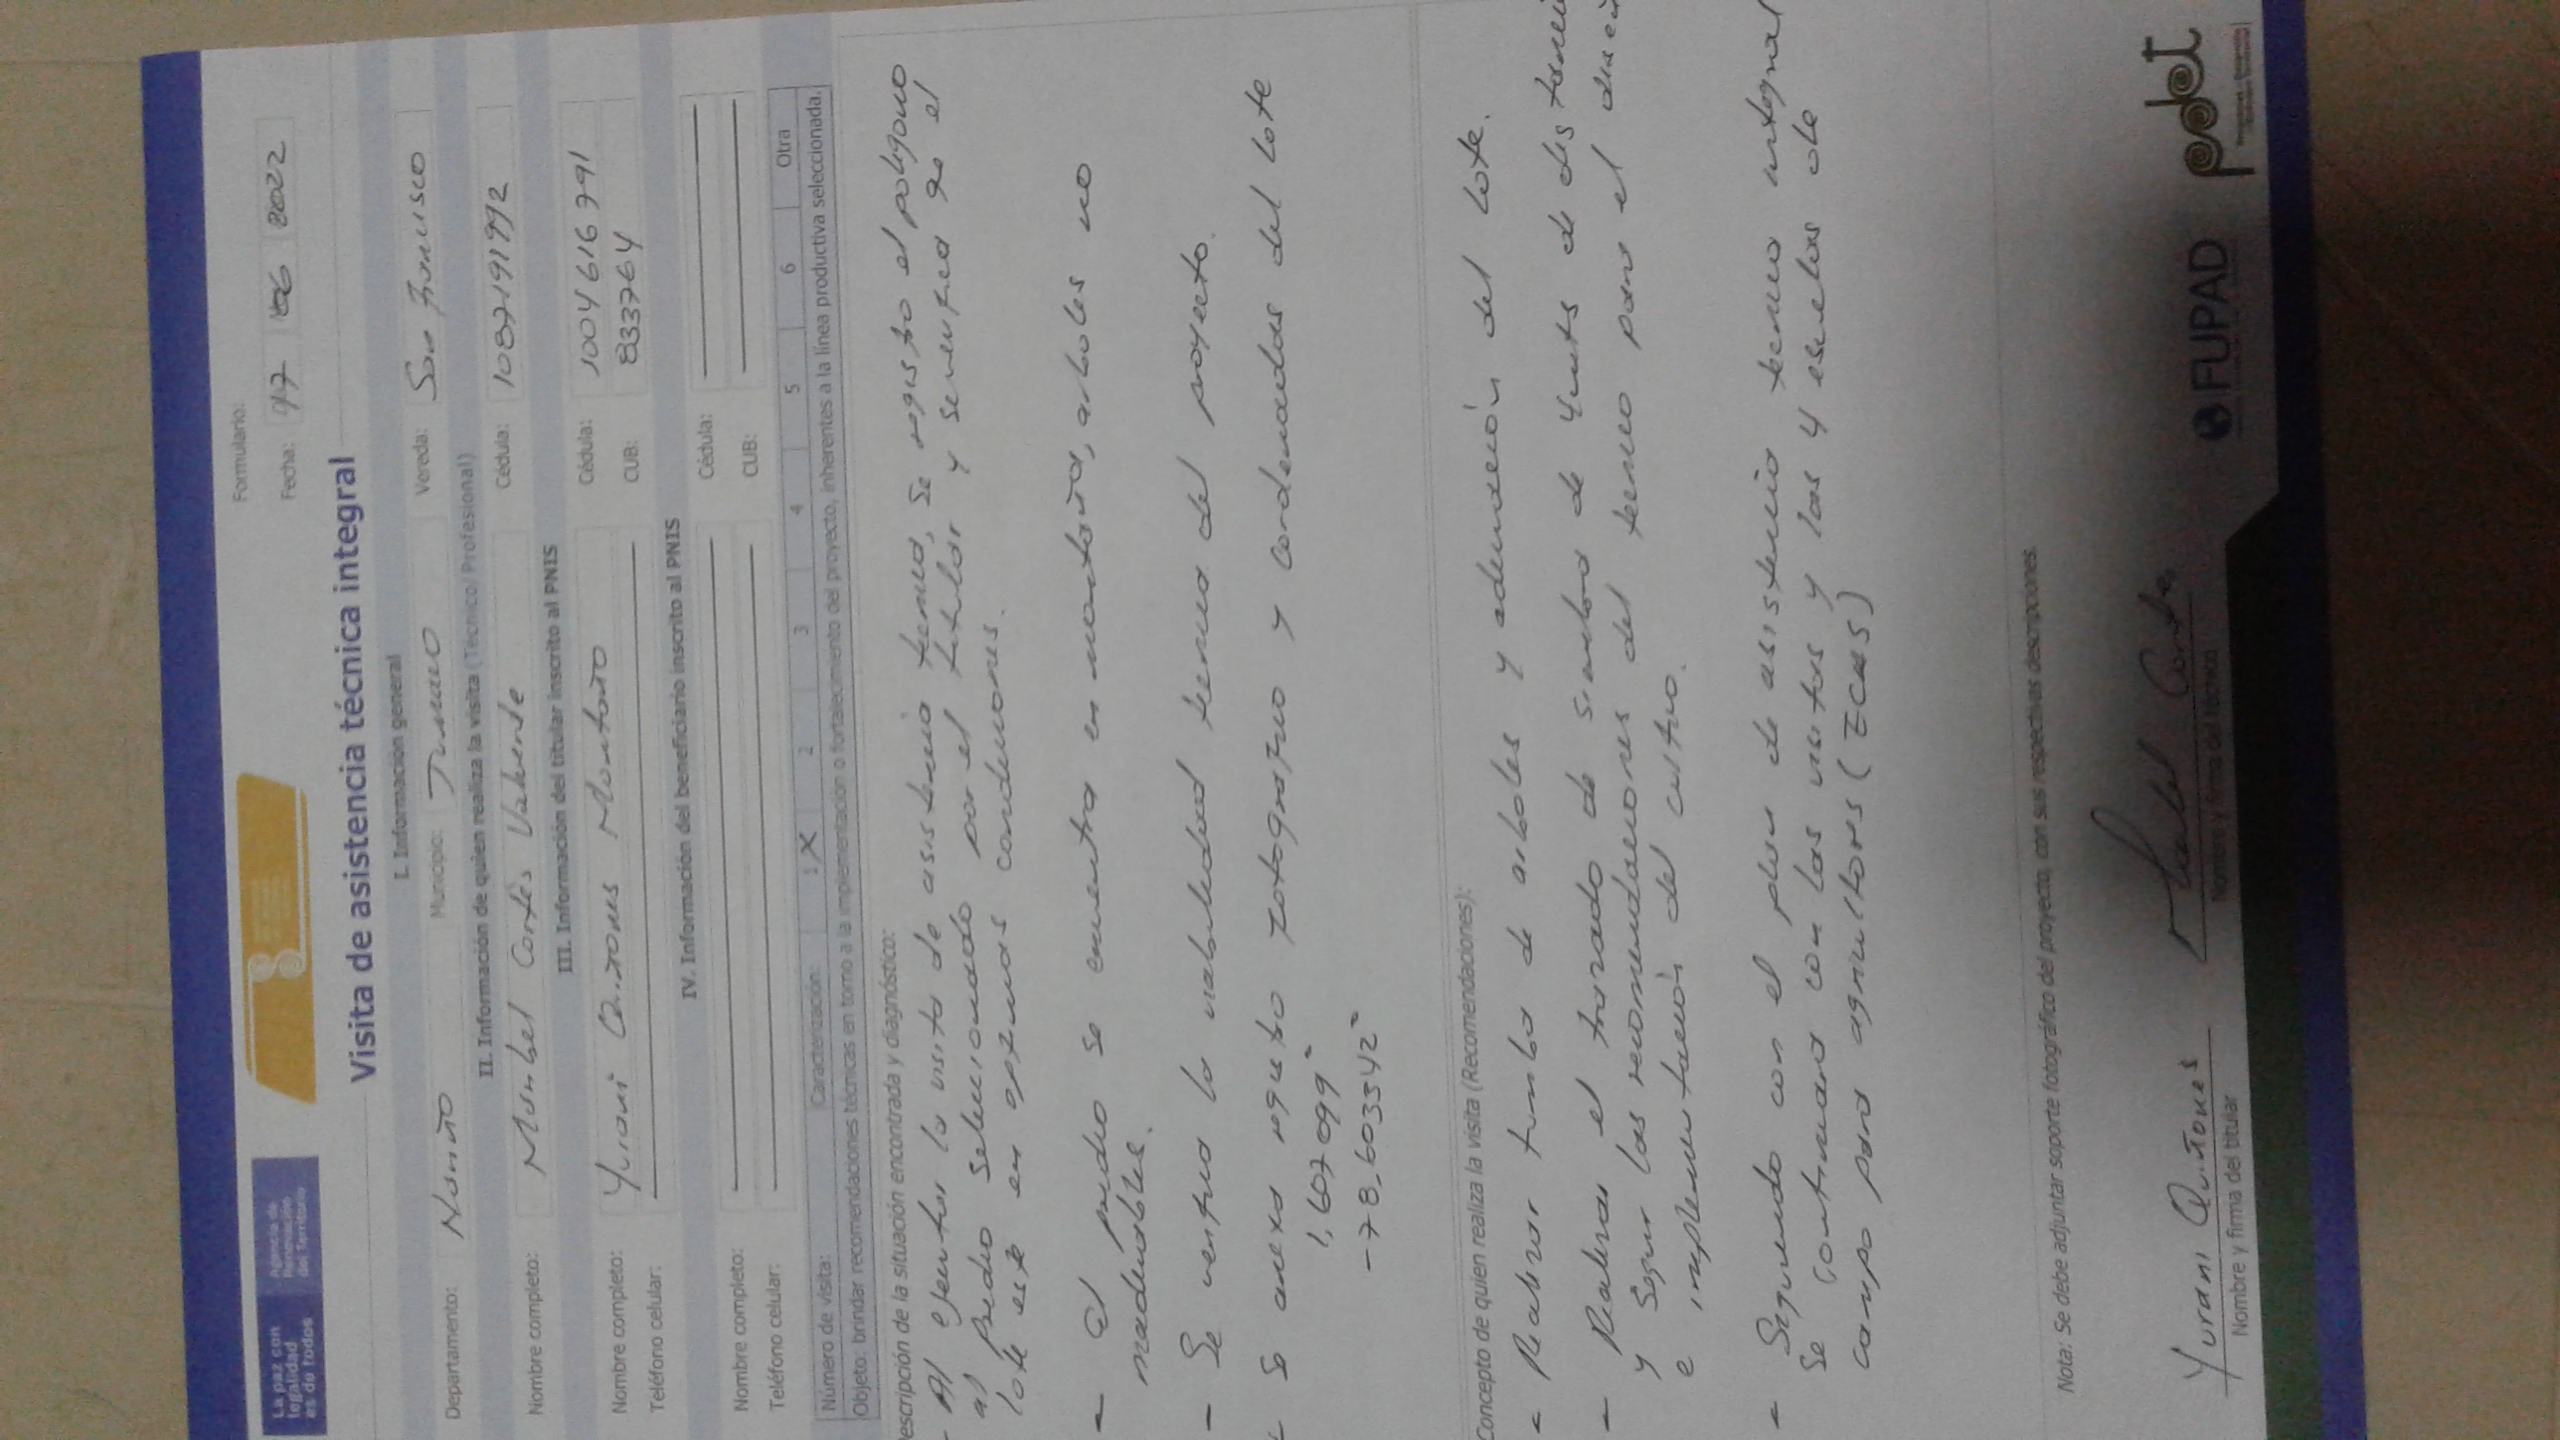 La paz con
legalidad
es de todos
Agencia de
Renovación
del Territorio
Formulario:
Fecha: 17 06 2022
Visita de asistencia técnica integral
I. Información general
Departamento: Nariño Municipio: Tumaco Vereda: San Francisco
II. Información de quien realiza la visita (Técnico/ Profesional)
Nombre completo: Maribel Cortés Valiente Cédula: 1087191992
III. Información del titular inscrito al PNIS
Nombre completo: Yurani Quiñones Montaño Cédula: 1004616791
Teléfono celular: CUB: 8337764
IV. Información del beneficiario inscrito al PNIS
Nombre completo: Cédula:
Teléfono celular: CUB:
Número de visita: Caracterización: 1 X 2 3 4 5 6 Otra
Objeto: brindar recomendaciones técnicas en torno a la implementación o fortalecimiento del proyecto, inherentes a la línea productiva seleccionada.
escripción de la situación encontrada y diagnóstico:
- Al ejecutar la visita de asistencia técnica, se registro el poligono
al predio seleccionado por el titular y se verifica qe el
lote este en optimas condiciones.
- El predio se encuentra en montaña, arboles no
maderables.
- Se verifica la viabilidad tecnica del proyecto.
- Se anexa registro fotografico y cordenadas del lote
1,607099"
-78,603342"
Concepto de quien realiza la visita (Recomendaciones):
- Realizar tumba de arboles y adecuación del lote.
- Realizar el trazado de siembra de 4 mts de
y seguir las recomendaciones del tecnico para el
e implementación del cultivo.
- Siguiendo con el plan de asistencia tecnico integral
se continuara con las visitas y las 4 escuelas de
campo para agricultores (ECAS)
Nota: Se debe adjuntar soporte fotográfico del proyecto, con sus respectivas descripciones.
Yurani Quiñones
Nombre y firma del titular
Maribel Cortés
Nombre y firma del técnico
FUPAD
pdet